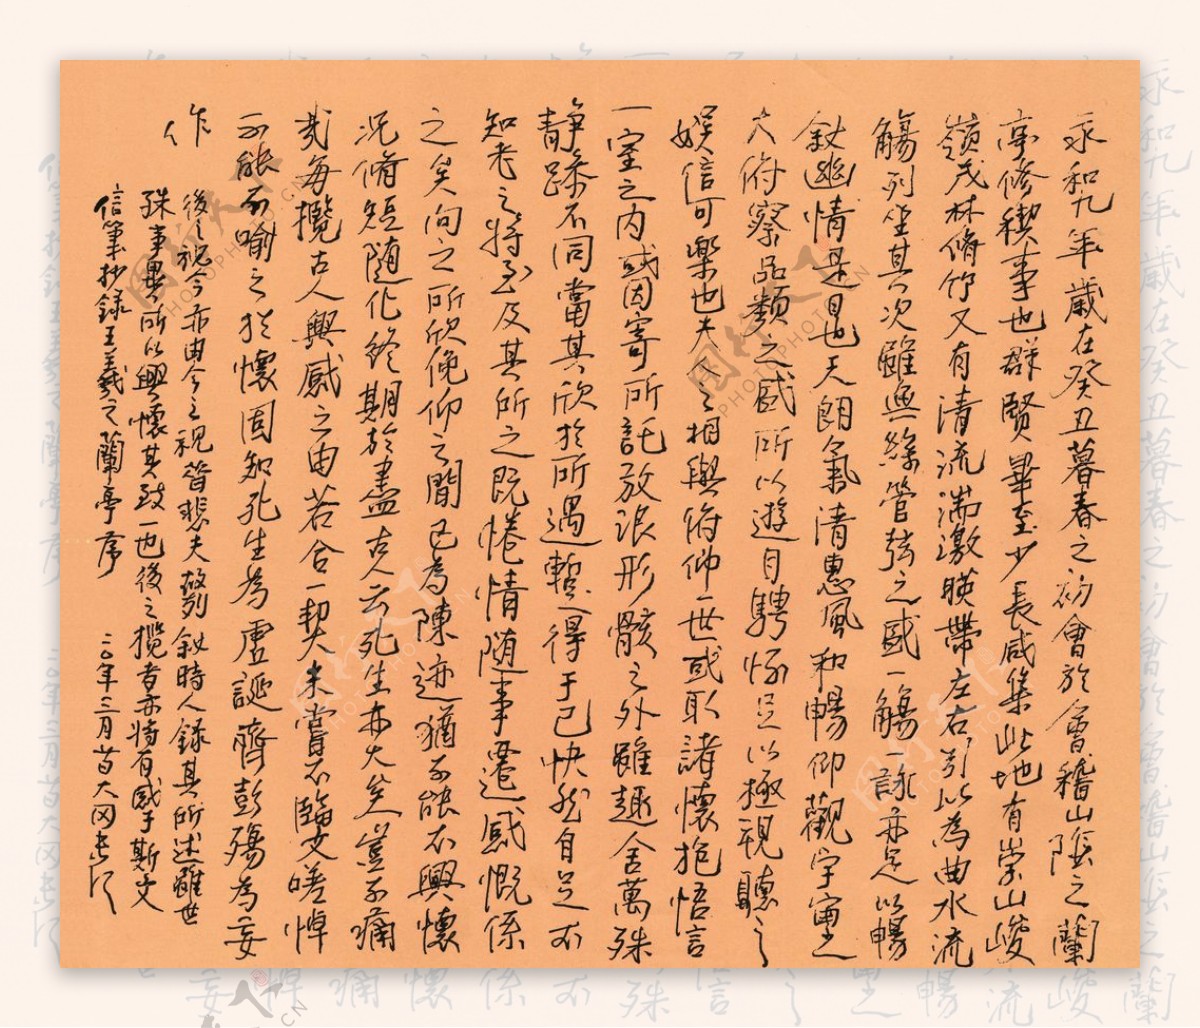 永和九年歲在癸丑暮春之初會於會稽山陰之蘭
亭修稧事也群賢畢至少長咸集此地有崇山峻
嶺茂林脩竹又有清流湍激暎帶左右引以為曲水流
觴列坐其次雖無絲管弦之盛一觴一詠亦足以暢
敘幽情是日也天朗氣清惠風和暢仰觀宇宙之
大俯察品類之盛所以遊目騁懷足以極視聽之
娛信可樂也夫人之相與俯仰一世或取諸懷抱悟言
一室之內或因寄所託放浪形骸之外雖趣舍萬殊
靜躁不同當其欣於所遇暫得于己快然自足不
知老之將至及其所之既惓情隨事遷感慨係
之矣向之所欣俛仰之間已為陳迹猶不能不興懷
況脩短隨化終期於盡古人云死生亦大矣豈不痛
哉每攬古人興感之由若合一契未嘗不臨文嗟悼
不能不喻之於懷固知死生為虛誕齊彭殤為妄
作
後之視今亦由今之視昔悲夫故列敘時人錄其所述雖世
殊事異所以興懷其致一也後之攬者亦將有感于斯文
信筆抄錄王羲之蘭亭序 二〇年三月